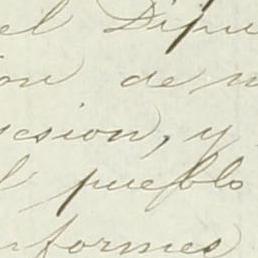 el Dipu
ion de m
sesion, y
l pueblo
nformes